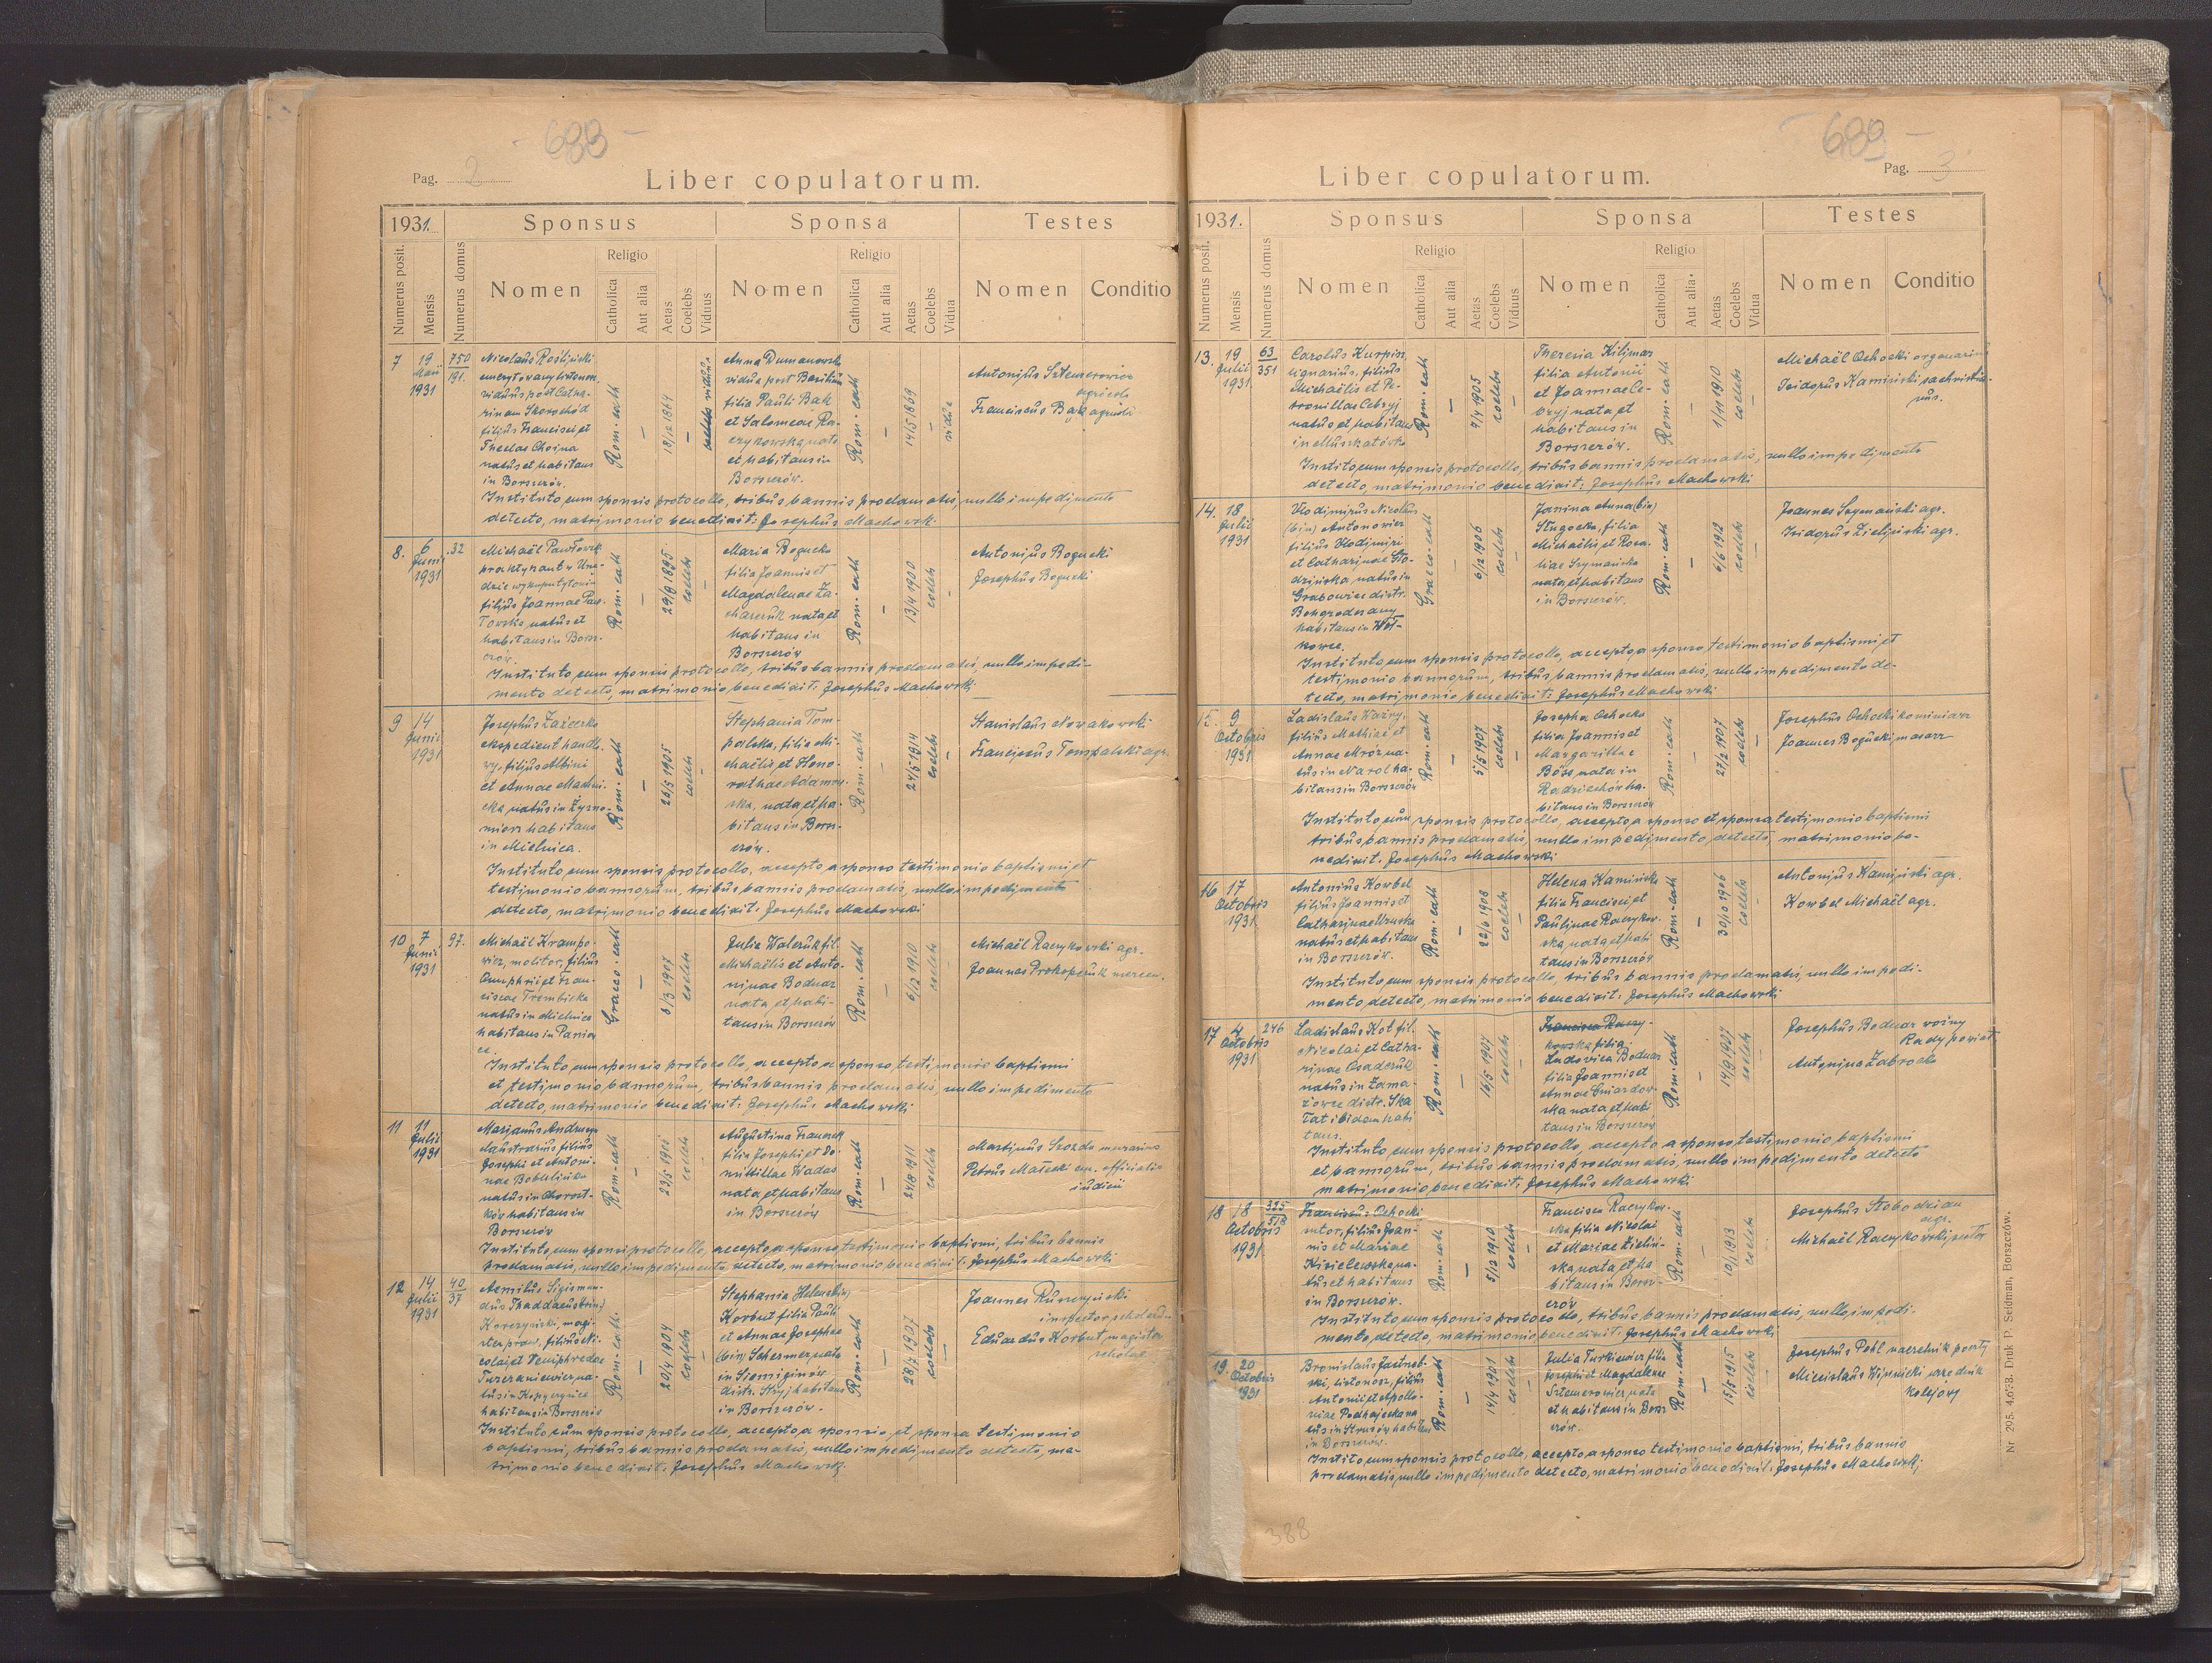 - 688 -
Pag. 2
Liber copulatorum.
1931.
Sponsus
Sponsa
Testes
Numerus posit.
Mensis
Numerus domus
Nomen
Religio
Catholica
Aut alia
Aetas
Coelebs
Viduus
Nomen
Religio
Catholica
Aut alia
Aetas
Coelebs
Vidua
Nomen
Conditio
7
19
Maii
1931
750
191.
Nicolaus Rośliński
emerytowany
viduus post Catha-
rinam Skorochód
filius Francisci et
Theclae Choina
natus et habitans
in Borszczów.
Rom. cath
18/12 1864
viduus
Anna Dumanowska
vidua post Basilium
filia Pauli Bak
et Salomeae Ra-
czykowska, nata
et habitans in
Borszczów.
Rom. cath
14/5 1869
vidua
Antonius Sztemerowicz
agricola
Franciscus Bak agricola
Instituto cum sponsis protocollo, tribus bannis proclamatis, nullo impedimento
detecto, matrimonio benedixit: Josephus Machowski.
8.
6
Junii
1931
32
Michaël Pawłowski
praktykant w Urzę-
dzie wykupu tytoniu
filius Joannae Paw-
łowska natus et
habitans in Borsz-
czów.
Rom. cath
29/9 1895
coelebs
Maria Bogucka
filia Joannis et
Magdalenae Za-
charczuk nata et
habitans in
Borszczów
Rom. cath
13/4 1900
coelebs
Antonius Bogucki
Josephus Bogucki
Instituto cum sponsis protocollo, tribus bannis proclamatis, nullo impedi-
mento detecto, matrimonio benedixit: Josephus Machowski
9
14
Junii
1931
Josephus Zażecka
ekspedient handlo
wy, filius Albini
et Annae Machni-
cka, natus in Żyzno-
mierz habitans
in Mielnica.
Rom. cath
26/5 1905
coelebs
Stephania Tom-
palska, filia Mi-
chaëlis et Hono-
rathae Adamow-
ska, nata et ha-
bitans in Borsz-
czów.
Rom. cath
24/5 1914
coelebs
Stanislaus Nowakowski
Franciscus Tompalski agr.
Instituto cum sponsis protocollo, accepto a sponso testimonio baptismi et
testimonio bannorum, tribus bannis proclamatis, nullo impedimento
detecto, matrimonio benedixit: Josephus Machowski
10
7
Junii
1931
97.
Michaël Krampo-
wicz, molitor, filius
Onuphrii et Fran-
ciscae Trembicka
natus in Mielnica
habitans in Paniow
ce.
Graeco. cath
8/3 1907
coelebs
Julia Walczuk fil.
Michaëlis et Anto-
ninae Bodnar
nata et habi-
tans in Borszczów
Rom. cath
6/12 1910
coelebs
Michaël Raczykowski agr.
Joannes Prokopczuk mercen.
Instituto cum sponsis protocollo, accepto a sponso, testimonio baptismi
et testimonio bannorum, tribus bannis proclamatis, nullo impedimento
detecto, matrimonio benedixit: Josephus Machowski
11
11
Julii
1931
Marjanus
filius
Josephi et Antoni-
nae
natus in Chorost-
ków habitans in
Borszczów
Rom-cath
23/5
coelebs
Augustina Franczek
filia Josephi et Do-
mitillae Wadas
nata et habitans
in Borszczów
Rom. cath
24/8 1911
coelebs
Martinus Szozda murarius
Petrus Małecki em. officialis
iudicii
Instituto cum sponsi protocollo, accepto a sponso testimonio baptismi, tribus bannis
proclamatis, nullo impedimento detecto, matrimonio benedixit: Josephus Machowski
12
14
Julii
1931
40
37
Aemilus Sigismun-
dus Thaddaeus (trin.)
Korczyński, magi-
ster praw, filius Ni-
colai et
na-
tus in Kopyczyńce
habitans in Borszczów
Rom. cath.
20/4 1904
coelebs
Stephania Helena (bin)
Korbut filia Pauli
et Annae Josephae
(bin) Schermer, nata
in Siemiginów
distr. Stryj habitans
in Borszczów.
Rom. cath
28/7 1907
coelebs
Joannes
inspector scholarum
Eduardus Korbut, magister
scholae
Instituto cum sponsis protocollo, accepto a sponso et sponsa testimonio
baptismi, tribus bannis proclamatis, nullo impedimento detecto, ma-
trimonio benedixit: Josephus Machowski.
- 689 -
Pag. 3
Liber copulatorum.
1931.
Sponsus
Sponsa
Testes
Numerus posit.
Mensis
Numerus domus
Nomen
Religio
Catholica
Aut alia
Aetas
Coelebs
Viduus
Nomen
Religio
Catholica
Aut alia.
Aetas
Coelebs
Vidua
Nomen
Conditio
13.
19
Julii
1931
63
351
Carolus Kurpisz
lignarius, filius
Michaëlis et Pe-
tronillae Cebryj
natus et habitans
in Muszkatówka
Rom. cath
4/4 1905
coelebs
Theresia Kilijmar
filia Antonii
et Joannae Ce-
bryj nata et
habitans in
Borszczów.
Rom. cath
1/11 1910
coelebs
Michaël Ochocki organarius
Isidorus Kamiński sachristia-
nus.
Instituto, cum sponsis protocollo, tribus bannis proclamatis, nullo impedimento
detecto, matrimonio benedixit: Josephus Machowski
14.
18
Julii
1931
Vlodimirus Nicolaus
(bin) Antonowicz
filius Vlodimiri
et Catharinae Sto-
dzińska, natus in
Grabowiec distr.
Bohorodczany
habitans in Woł-
kowce.
Graeco. cath
6/12 1906
coelebs
Janina Anna (bin)
Sługocka, filia
Michaëlis et Rosa-
liae Szymańska
nata, et habitans
in Borszczów.
Rom. cath
6/6 1912
coelebs
Joannes Szymański agr.
Isidorus Zieliński agr.
Instituto, cum sponsis protocollo, accepto, a sponso, testimonio baptismi et
testimonio bannorum, tribus bannis proclamatis, nullo impedimento de-
tecto, matrimonio benedixit: Josephus Machowski
15.
9
Octobris
1931
Ladislaus Ważny,
filius Mathiae et
Annae Mróz na-
tus in Narol ha-
bitans in Borszczów
Rom. cath
5/5 1907
coelebs
Josepha Ochocka
filia Joannis et
Margarithae
Böss, nata in
Radziechów ha-
bitans in Borszczów
Rom. cath
27/2 1907
coelebs
Josephus Ochocki kominiarz
Joannes Bogucki, masarz
Instituto cum sponsis protocollo, accepto, a sponso et sponsa testimonio baptismi
tribus bannis proclamatis, nullo impedimento, detecto, matrimonio be-
nedixit: Josephus Machowski
16
17
Octobris
1931
Antonius Kowbel
filius Joannis et
Catharinae
natus et habitans
in Borszczów.
Rom. cath
22/6 1908
coelebs
Helena Kamińska
filia Francisci et
Paulinae Raczykow-
ska, nata et habi
tans in Borszczów
Rom. cath
30/10 1906
coelebs
Antonius Kamiński agr.
Kowbel Michaël agr.
Instituto, cum sponsis protocollo, tribus bannis proclamatis, nullo impedi-
mento, detecto, matrimonio benedixit: Josephus Machowski
17
4
Octobris
1931
246
Ladislaus Kot fil.
Nicolai et Catha-
rinae Osadczuk
natus in Zama-
rowce distr. Ska
łat ibidem habi
tans.
Rom. cath
16/5 1907
coelebs
Francisca Raczy-
kowska filia
Ludovica Bodnar
filia Joannis et
Annae Gwiazdow-
ska nata et habi
tans in Borszczów
Rom. cath
14/9 1907
coelebs
Josephus Bodnar woźny
Rady powiat.
Antonina Zabrocka
Instituto, cum sponsis protocollo, accepto a sponso, testimonio baptismi
et bannorum, tribus bannis proclamatis, nullo impedimento detecto
matrimonio benedixit: Josephus Machowski
18
18
Octobris
1931
325
578
Franciscus Ochocki
sutor, filius Joan-
nis et Mariae
Kisielewska, na-
tus et habitans
in Borszczów.
Rom. cath
5/12 1910
coelebs
Francisca Raczykow-
ska filia Nicolai
et Mariae Zieliń-
ska, nata et ha
bitans in Borsz-
czów
Rom. cath
10/1 1913
coelebs
Josephus Słobodzian
agr.
Michaël Raczykowski, sutor
Instituto, cum sponsis protocollo, tribus, bannis proclamatis, nullo, impedi-
mento, detecto, matrimonio benedixit: Josephus Machowski
19.
20
Octobris
1931
Bronislaus Jastrzęb-
ski, listonosz, filius
Antonii et Apollo-
niae Podhajecka na
tus in Strusów habitans
in Borszczów.
Rom. cath
14/4 1901
coelebs
Julia Turkiewicz filia
Josephi et Magdalenae
Sztemerowicz nata
et habitans in Borsz
czów.
Rom. cath
15/5 1915
coelebs
Josephus Pohl naczelnik poczty
Miecislaus Lipnicki urzędnik
kolejowy
Instituto cum sponsis protocollo, accepto, a sponso testimonio baptismi, tribus bannis
proclamatis, nullo impedimento detecto, matrimonio benedixit: Josephus Machowski
388
Nr 295. 4,6?3. Druk P. Seidman, Borszczów.